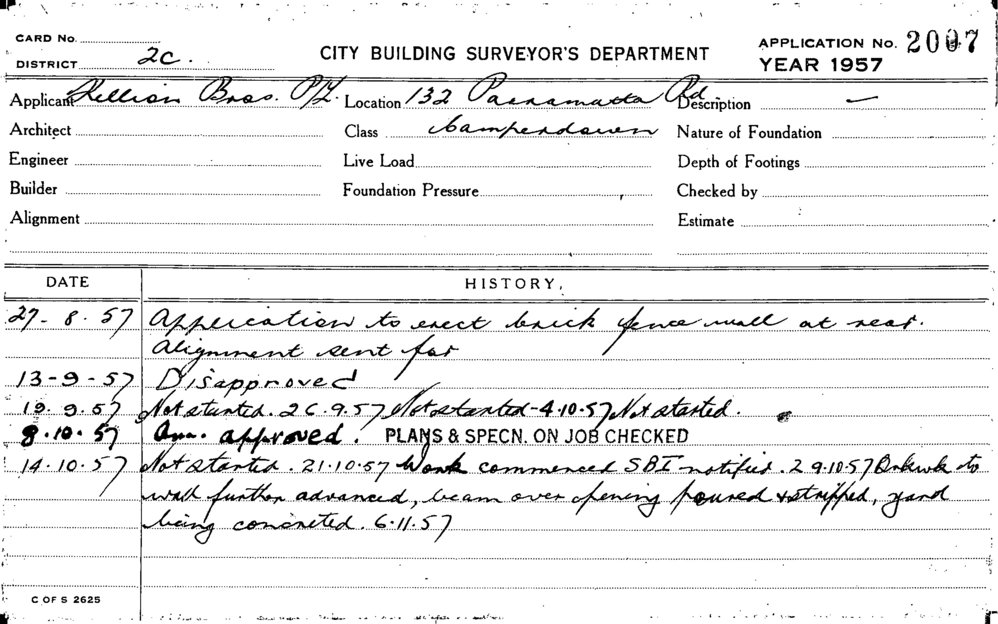 CARD No.
DISTRICT 2C.
CITY BUILDING SURVEYOR'S DEPARTMENT
APPLICATION No. 2007
YEAR 1957
Applicant Killion Bros. P/L. Location 132 Parramatta Rd Description —
Architect Class Camperdown Nature of Foundation
Engineer Live Load Depth of Footings
Builder Foundation Pressure Checked by
Alignment Estimate
DATE HISTORY.
27-8.57 Application to erect brick fence wall at rear.
Alignment sent for
13-9-57 Disapproved
19.9.57 Not started. 26.9.57 Not started-4.10.57 Not started.
8.10.57 approved. PLANS & SPECN. ON JOB CHECKED
14.10.57 Not started. 21.10.57 Work commenced SBI notified. 29.10.57 Brkwk to
wall further advanced, beam over opening poured & stripped, yard
being concreted. 6.11.57
C OF S 2625